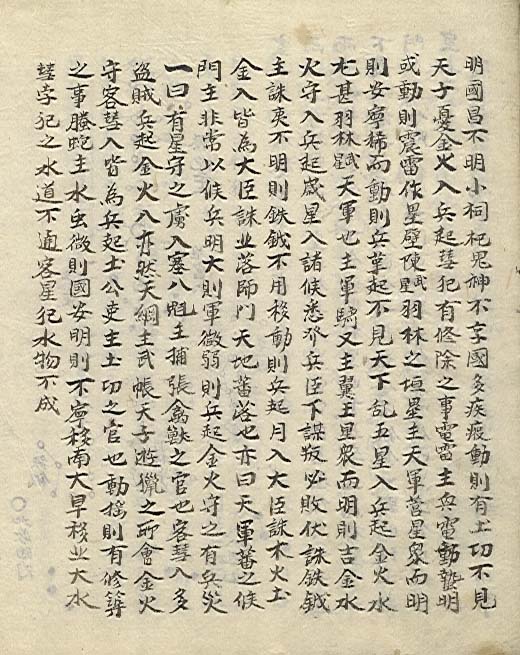 明國昌不明小祠祀鬼神不享國多疾疫動則有土切不見
天子憂金火入兵起彗犯有修除之事電雷主兵電動蟄明
或動則震雷作壘壁陳羽林之垣壘主天軍營星眾而明
則安寧稀而動則兵革起不見天下乱五星入兵起金火水
尤甚羽林天軍也主軍騎又主翼王星眾而明則吉金水
火守入兵起歲星入諸候悉發兵臣下謀叛必敗伏誅鈇鉞
主誅夷不明則鈇鉞不用移動則兵起月入大臣誅木火土
金入皆為大臣誅北落師門天地蕃落也亦曰天軍蕃之候
門主非常以候兵明大則軍微弱則兵起金火守之有兵災
一曰有星守之虜入塞八魁主捕張禽獸之官也客彗入多
盗賊兵起金火入亦然天綱主武帳天子遊獵之所會金火
守客彗入皆為兵起土公吏主土切之官也動搖則有修築
之事螣蛇主水虫微則國安明則不寧移南大旱移北大水
彗孛犯之水道不通客星犯水物不成